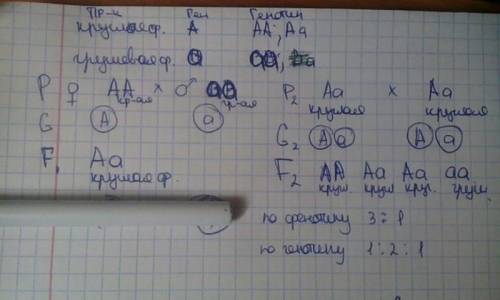 Пр-к Ген Генотип
круглая ф. A AA, Aa
грушевая ф. a aa,
P ♀ AA × ♂ aa
кр-ая гр-ая
G A a
F₁ Aa
круглая ф.
P₂ Aa × Aa
круглая круглая
G₂ A a A a
F₂ AA Aa Aa aa
кругл кругл круг. груш.
по фенотипу 3 : 1
по генотипу 1 : 2 : 1